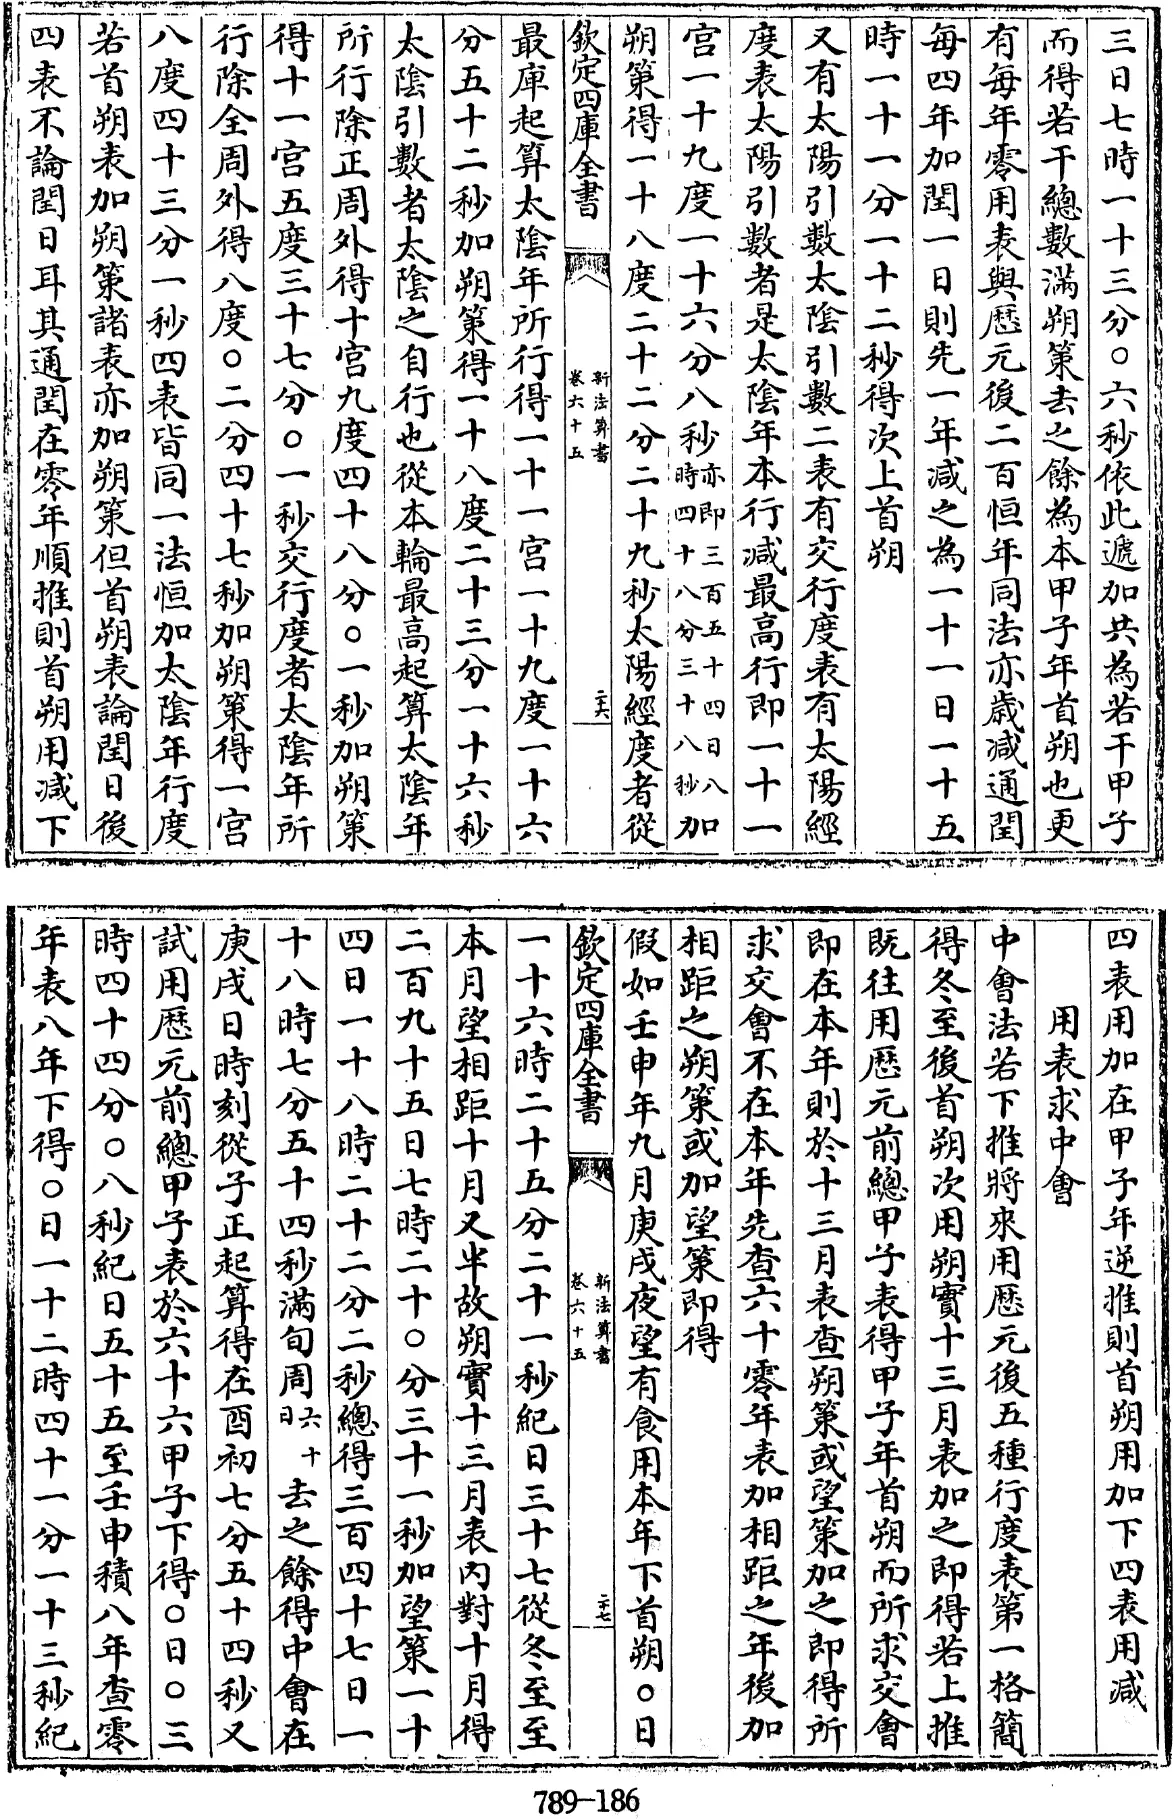 三日七時一十三分〇六秒依此遞加共為若干甲子
而得若干總數滿朔策去之餘為本甲子年首朔也更
有每年零用表與厯元後二百恒年同法亦歲減通閏
每四年加閏一日則先一年減之為一十一日一十五
時一十一分一十二秒得次上首朔
又有太陽引數太陰引數二表有交行度表有太陽經
度表太陽引數者是太陰年本行減最高行即一十一
宮一十九度一十六分八秒亦即三百五十四日八時四十八分三十八秒加
朔策得一十八度二十二分二十九秒太陽經度者從
欽定四庫全書
新法算書
卷六十五
二六
最庫起算太陰年所行得一十一宮一十九度一十六
分五十二秒加朔策得一十八度二十三分一十六秒
太陰引數者太陰之自行也從本輪最高起算太陰年
所行除正周外得十宮九度四十八分〇一秒加朔策
得十一宮五度三十七分〇一秒交行度者太陰年所
行除全周外得八度〇二分四十七秒加朔策得一宮
八度四十三分一秒四表皆同一法恒加太陰年行度
若首朔表加朔策諸表亦加朔策但首朔表論閏日後
四表不論閏日耳其通閏在零年順推則首朔用減下
四表用加在甲子年逆推則首朔用加下四表用減
用表求中會
中會法若下推將來用厯元後五種行度表第一格簡
得冬至後首朔次用朔實十三月表加之即得若上推
既往用厯元前總甲子表得甲子年首朔而所求交會
即在本年則於十三月表查朔策或望策加之即得所
求交會不在本年先查六十零年表加相距之年後加
相距之朔策或加望策即得
假如壬申年九月庚戌夜望有食用本年下首朔〇日
欽定四庫全書
新法算書
卷六十五
二十七
一十六時二十五分二十一秒紀日三十七從冬至至
本月望相距十月又半故朔實十三月表內對十月得
二百九十五日七時二十〇分三十一秒加望策一十
四日一十八時二十二分二秒總得三百四十七日一
十八時七分五十四秒滿旬周六十日去之餘得中會在
庚戌日時刻從子正起算得在酉初七分五十四秒又
試用厯元前總甲子表於六十六甲子下得〇日〇三
時四十四分〇八秒紀日五十五至壬申積八年查零
年表八年下得〇日一十二時四十一分一十三秒紀
789-186